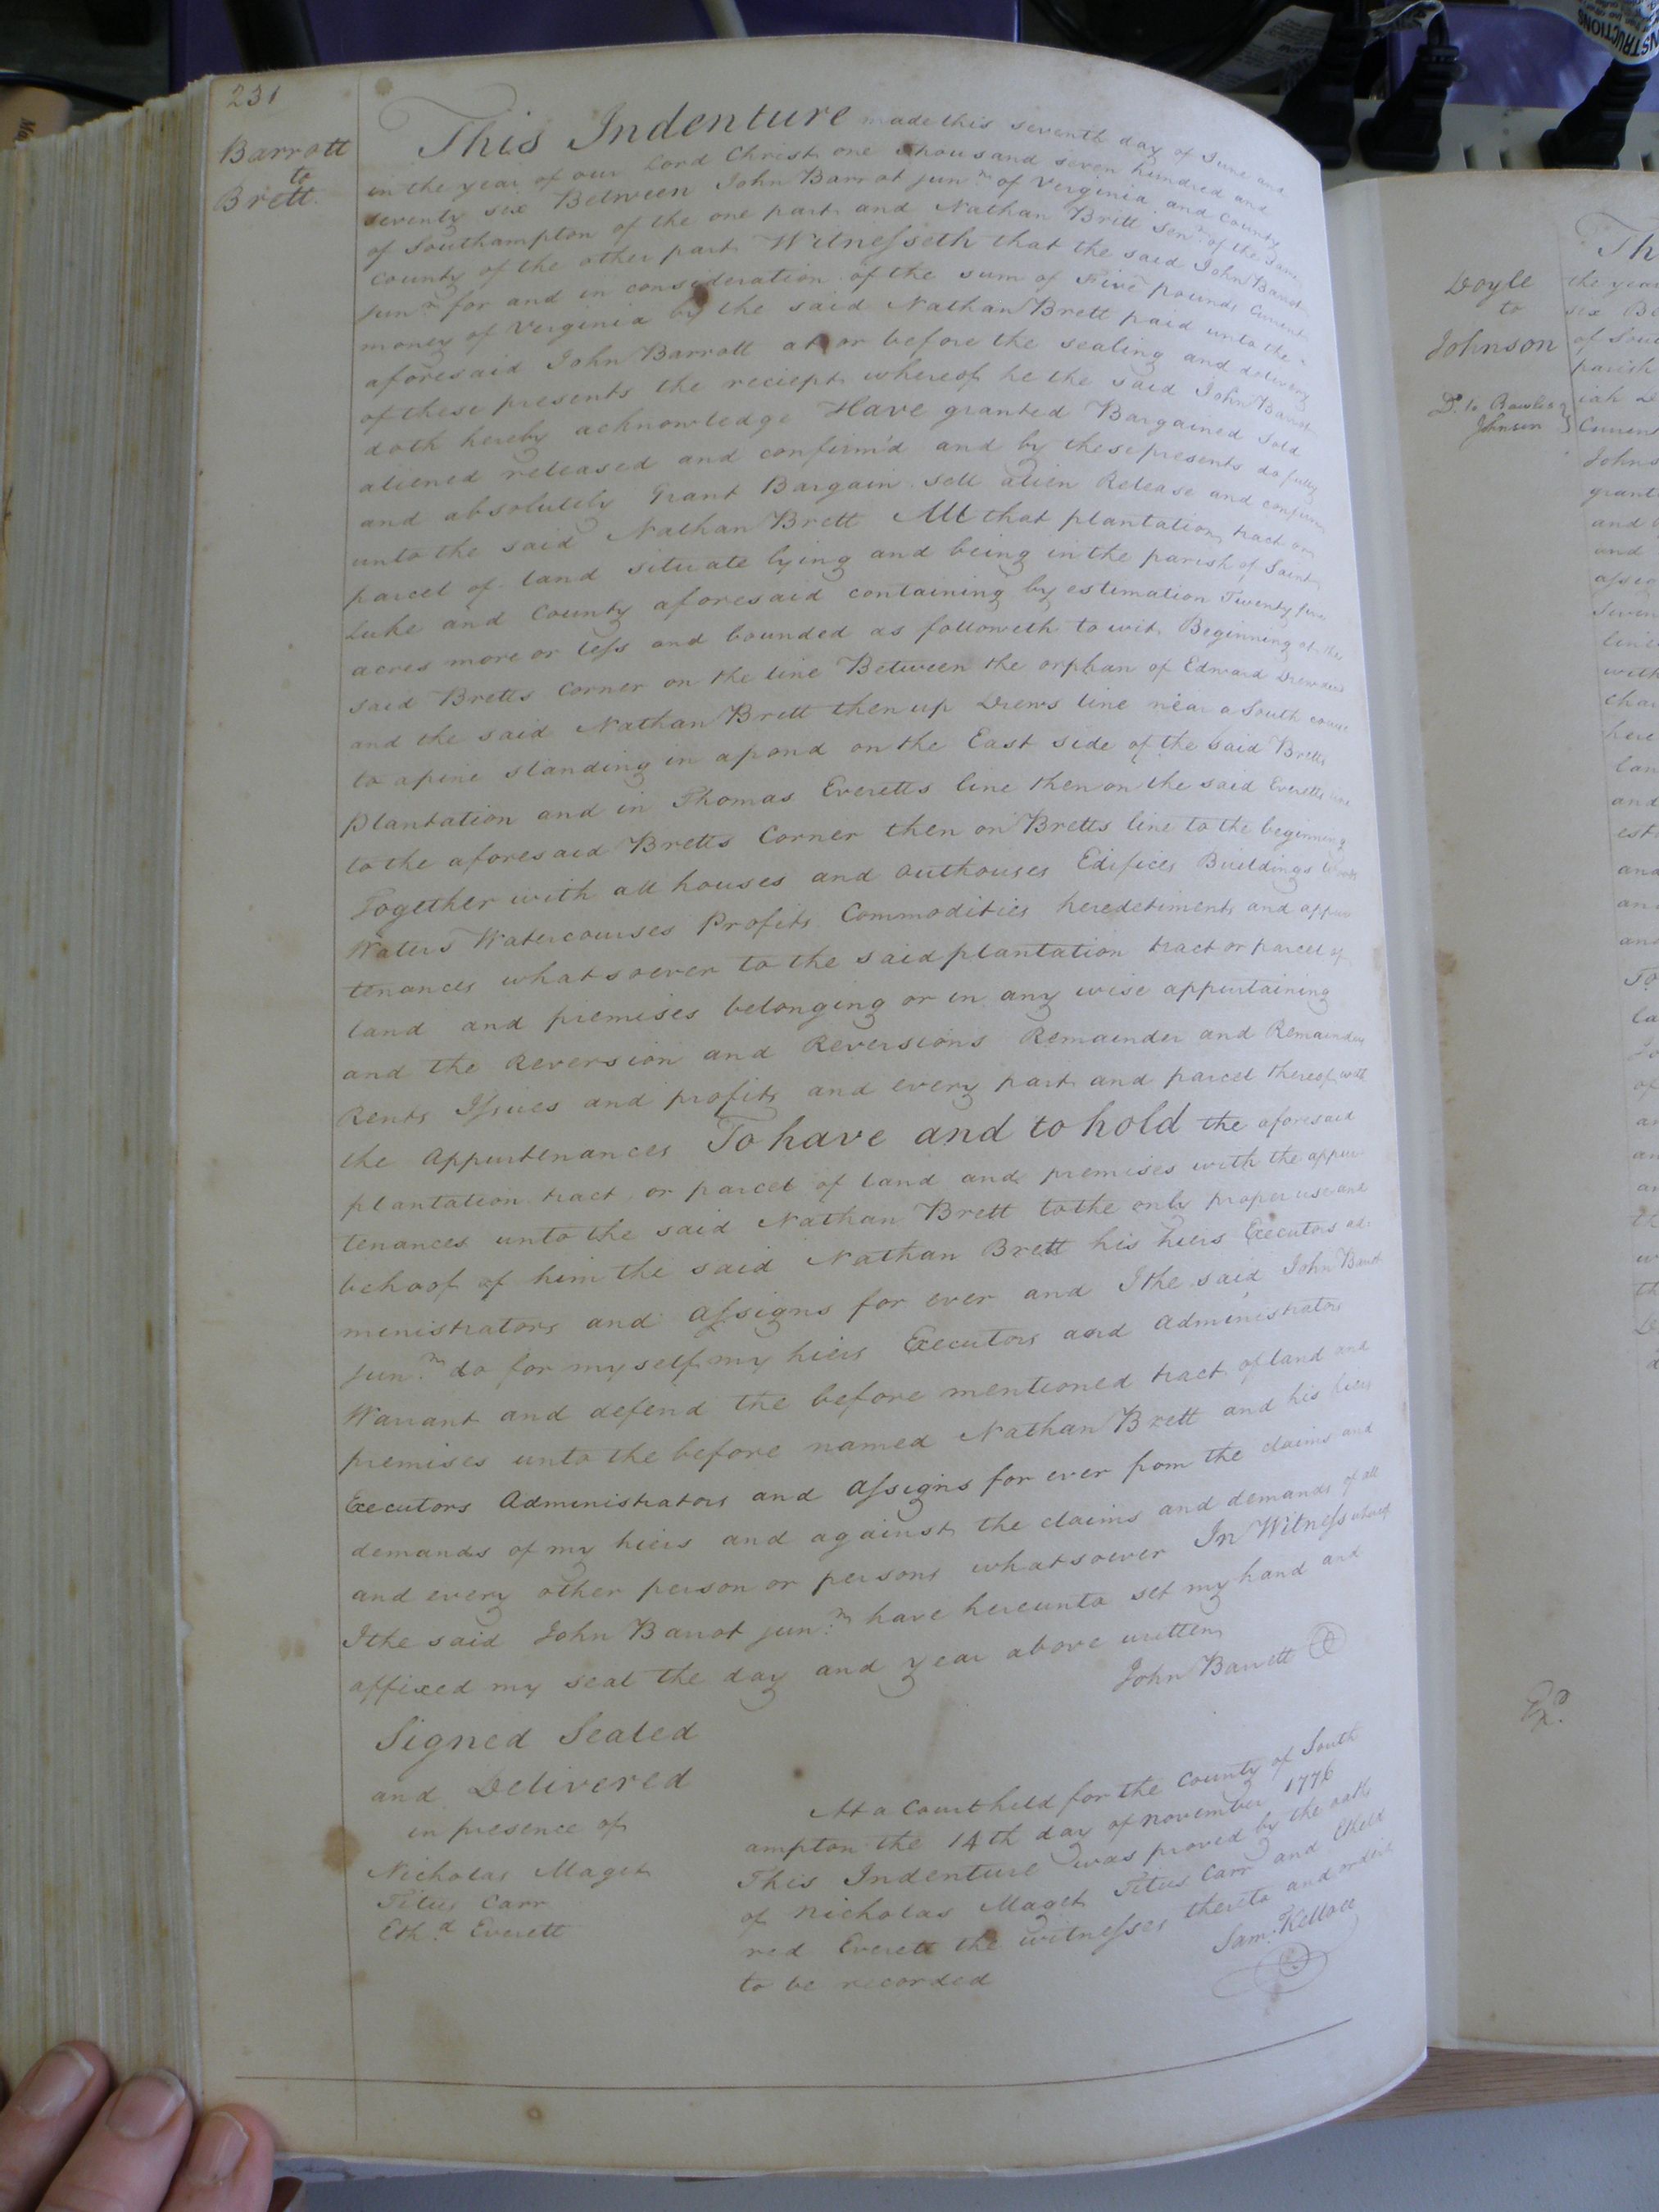 231
Barrott
to
Brett.
This Indenture made this seventh day of June and
in the year of our Lord Christ one thousand seven hundred and
seventy six Between John Barrot junr. of Verginia and County
of Southampton of the one part and Nathan Britt Senr. of the same
County of the other part Witnesseth that the said John Barrot
junr. for and in consideration of the sum of Five pounds Current
money of Verginia by the said Nathan Brett paid unto the
aforesaid John Barrott at or before the sealing and delivery
of these presents the reciept whereof he the said John Barrot
doth hereby acknowledge Have granted Bargained Sold
aliened released and confirm'd and by these presents do fully
and absolutely Grant Bargain sell alien Release and confirm
unto the said Nathan Brett All that plantation tract or
parcel of land situate lying and being in the parish of Saint
Luke and County aforesaid containing by estimation Twenty five
acres more or less and bounded as followeth to wit Beginning at the
said Bretts Corner on the line Between the orphan of Edward Drew
and the said Nathan Brett then up Drews line near a South course
to a pine standing in a pond on the East side of the said Bretts
plantation and in Thomas Everetts line then on the said Everetts line
to the aforesaid Bretts Corner then on Bretts line to the beginning
Together with all houses and outhouses Edifices Buildings
Waters Watercourses Profits Commodities heredetiments and appur
tenances whatsoever to the said plantation tract or parcel of
land and premises belonging or in any wise appurtaining
and the Reversion and Reversions Remainder and Remainders
Rents Issues and profits and every part and parcel thereof with
the Appurtenances To have and to hold the aforesaid
plantation tract or parcel of land and premises with the appur
tenances unto the said Nathan Brett to the only proper use and
behoof of him the said Nathan Brett his hiers Executors ad
ministrators and assigns for ever and I the said John Barrot
junr. do for myself my hiers Executors and administrators
Warrant and defend the before mentioned tract of land and
premises unto the before named Nathan Brett and his hiers
Executors Administrators and assigns for ever from the claims and
demands of my hiers and against the claims and demands of all
and every other person or persons whatsoever In Witness whereof
I the said John Barrot junr. have hereunto set my hand and
affixed my seal the day and year above written
John Barrett
Signed Sealed
and Delivered
in presence of
Nicholas Maget
Titus Carr
Ethd. Everett
At a Court held for the County of South
ampton the 14th day of november 1776
This Indenture was proved by the oath
of Nicholas Maget Titus Carr and Etheld
red Everett the witnesses thereto and order'd
to be recorded
Sam. Kello
Doyle
to
Johnson